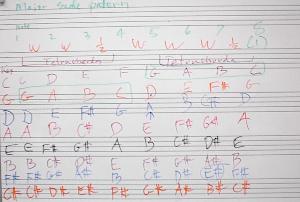 Major scale pattern
Note
1 2 3 4 5 6 7 8
(1)
W W ½ W W W ½
Tetrachords Tetrachords
Key
C C D E F G A B C
G G A B C D E F# G
D D E F# G A B C# D
A A B C# D E F# G# A
E E F# G# A B C# D# E
B B C# D# E F# G# A# B
F# F# G# A# B C# D# (E#) F#
C# C# D# E# F# G# A# B# C#